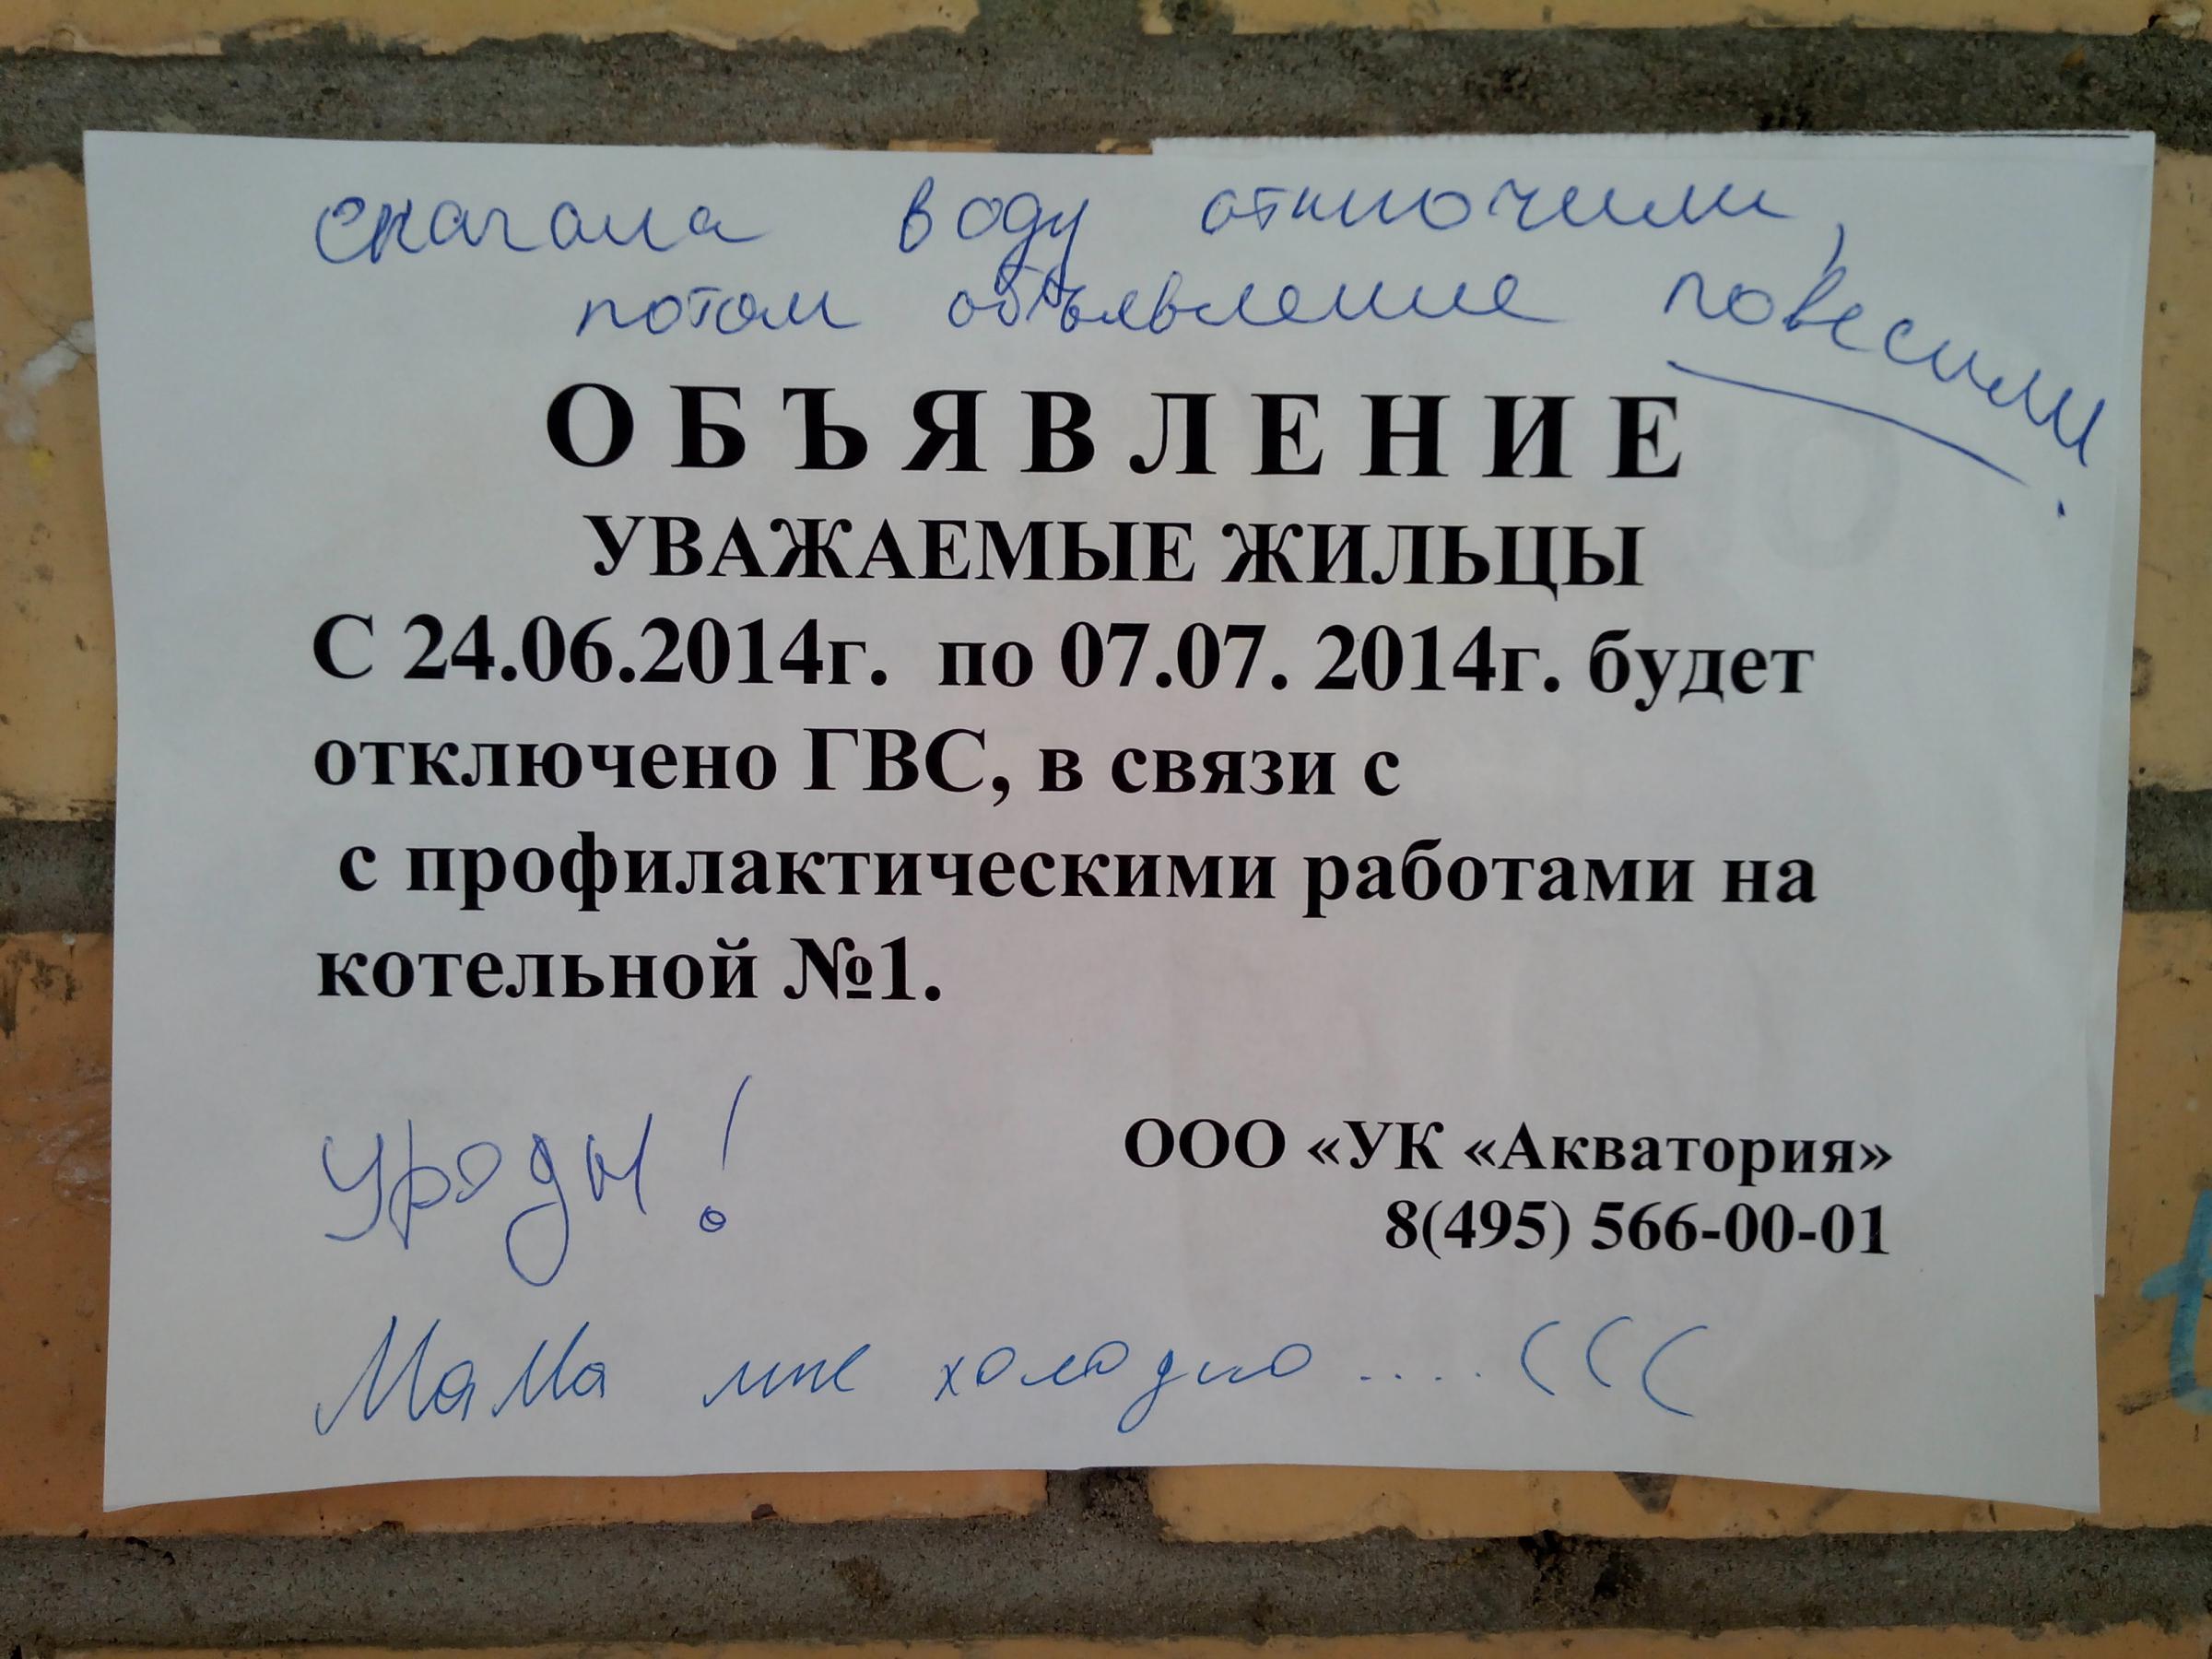 сначала воду отключили,
потом объявление повесили.
ОБЪЯВЛЕНИЕ
УВАЖАЕМЫЕ ЖИЛЬЦЫ
С 24.06.2014г. по 07.07. 2014г. будет
отключено ГВС, в связи с
с профилактическими работами на
котельной №1.
ООО «УК «Акватория»
8(495) 566-00-01
уроды!
Мама мне холодно....(((